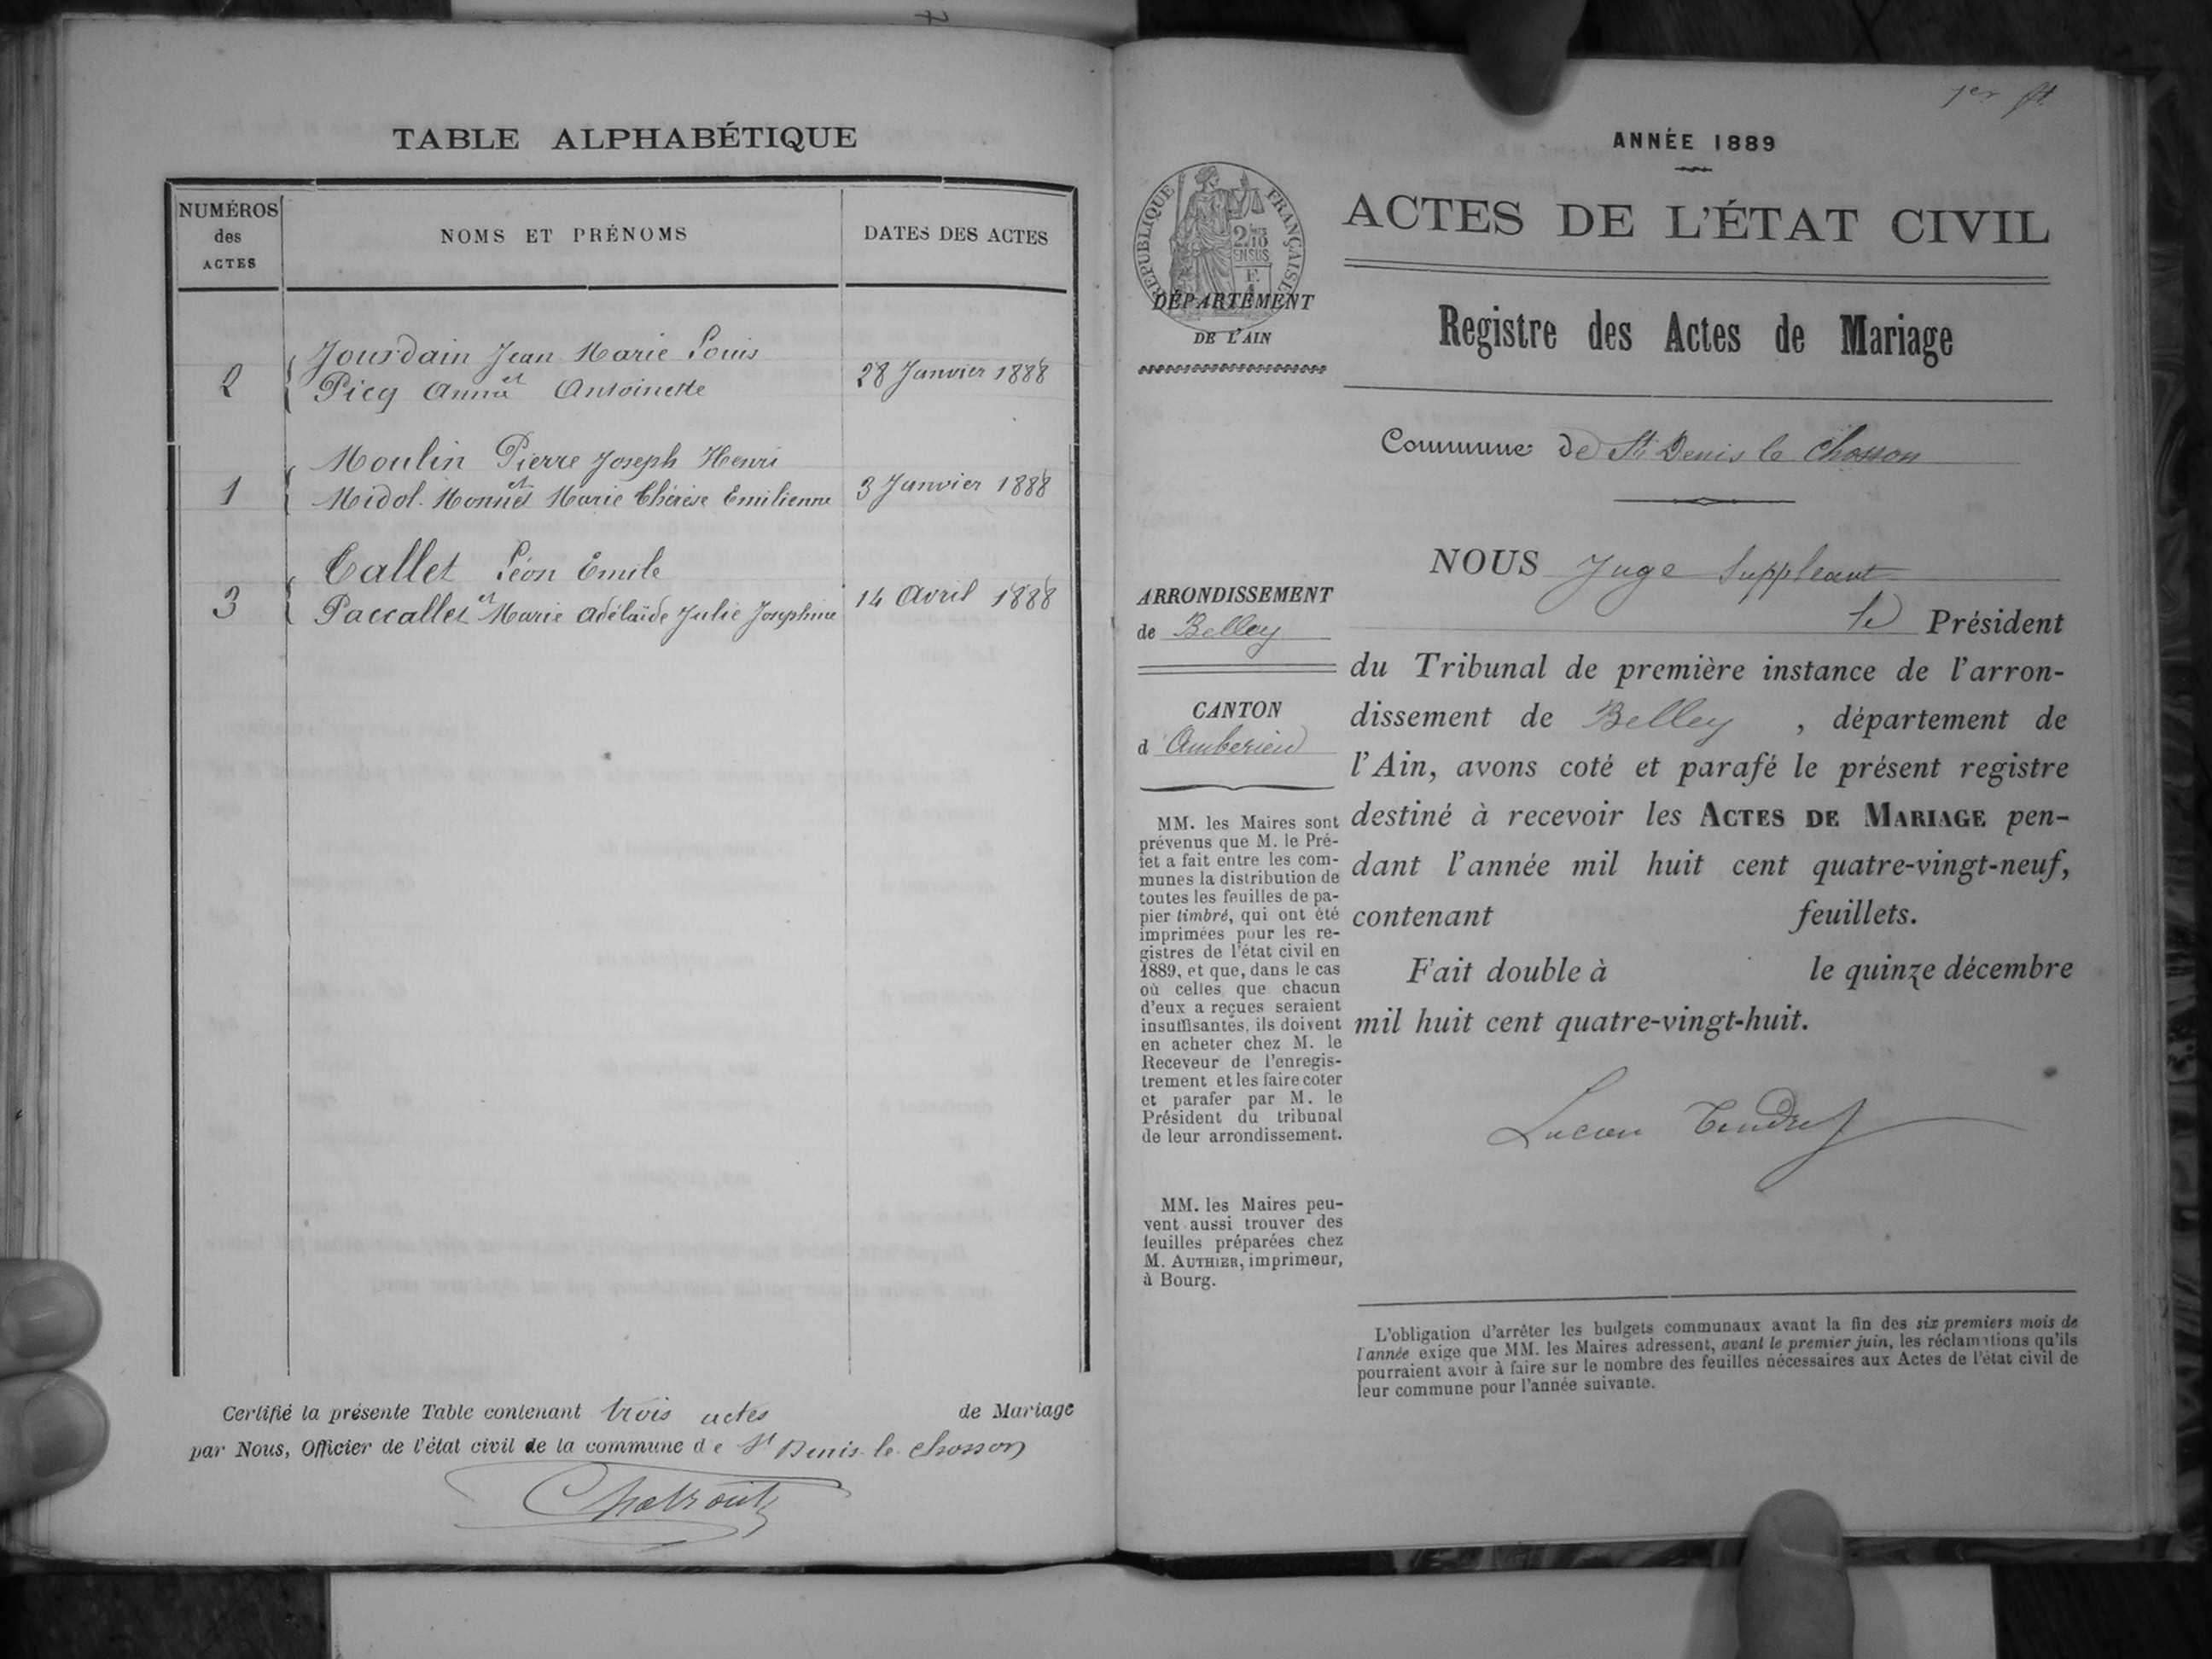 TABLE ALPHABÉTIQUE
NUMÉROS
des
ACTES
NOMS ET PRÉNOMS
DATES DES ACTES
Jourdain Jean Marie Louis
et
2
Picq Anna Antoinette
28 Janvier 1888
Moulin Pierre Joseph Henri
et
1
Midol-Monnet Marie Thérèse Emilienne
3 Janvier 1888
Tallet Léon Emile
et
3
Paccallet Marie Adélaïde Julie Joséphine
14 Avril 1888
Certifié la présente Table contenant trois actes de Mariage
par Nous, Officier de l'état civil de la commune de St Denis-le-Chosson
1er ft.
ANNÉE 1889
RÉPUBLIQUE FRANÇAISE
2/10
EN SUS
DÉPARTEMENT
DE L'AIN
ACTES DE L'ÉTAT CIVIL
Registre des Actes de Mariage
Commune de St Denis le Chosson
ARRONDISSEMENT
de Belley
CANTON
d'Ambérieu
MM. les Maires sont
prévenus que M. le Pré-
fet a fait entre les com-
munes la distribution de
toutes les feuilles de pa-
pier timbré, qui ont été
imprimées pour les re-
gistres de l'état civil en
1889, et que, dans le cas
où celles que chacun
d'eux a reçues seraient
insuffisantes, ils doivent
en acheter chez M. le
Receveur de l'enregis-
trement et les faire coter
et parafer par M. le
Président du tribunal
de leur arrondissement.
MM. les Maires peu-
vent aussi trouver des
feuilles préparées chez
M. AUTHIER, imprimeur,
à Bourg.
NOUS Juge Suppléant
Président
du Tribunal de première instance de l'arron-
dissement de Belley, département de
l'Ain, avons coté et parafé le présent registre
destiné à recevoir les ACTES DE MARIAGE pen-
dant l'année mil huit cent quatre-vingt-neuf,
contenant feuillets.
Fait double à le quinze décembre
mil huit cent quatre-vingt-huit.
Lucien Tendret
L'obligation d'arrêter les budgets communaux avant la fin des six premiers mois de
l'année exige que MM. les Maires adressent, avant le premier juin, les réclamations qu'ils
pourraient avoir à faire sur le nombre des feuilles nécessaires aux Actes de l'état civil de
leur commune pour l'année suivante.